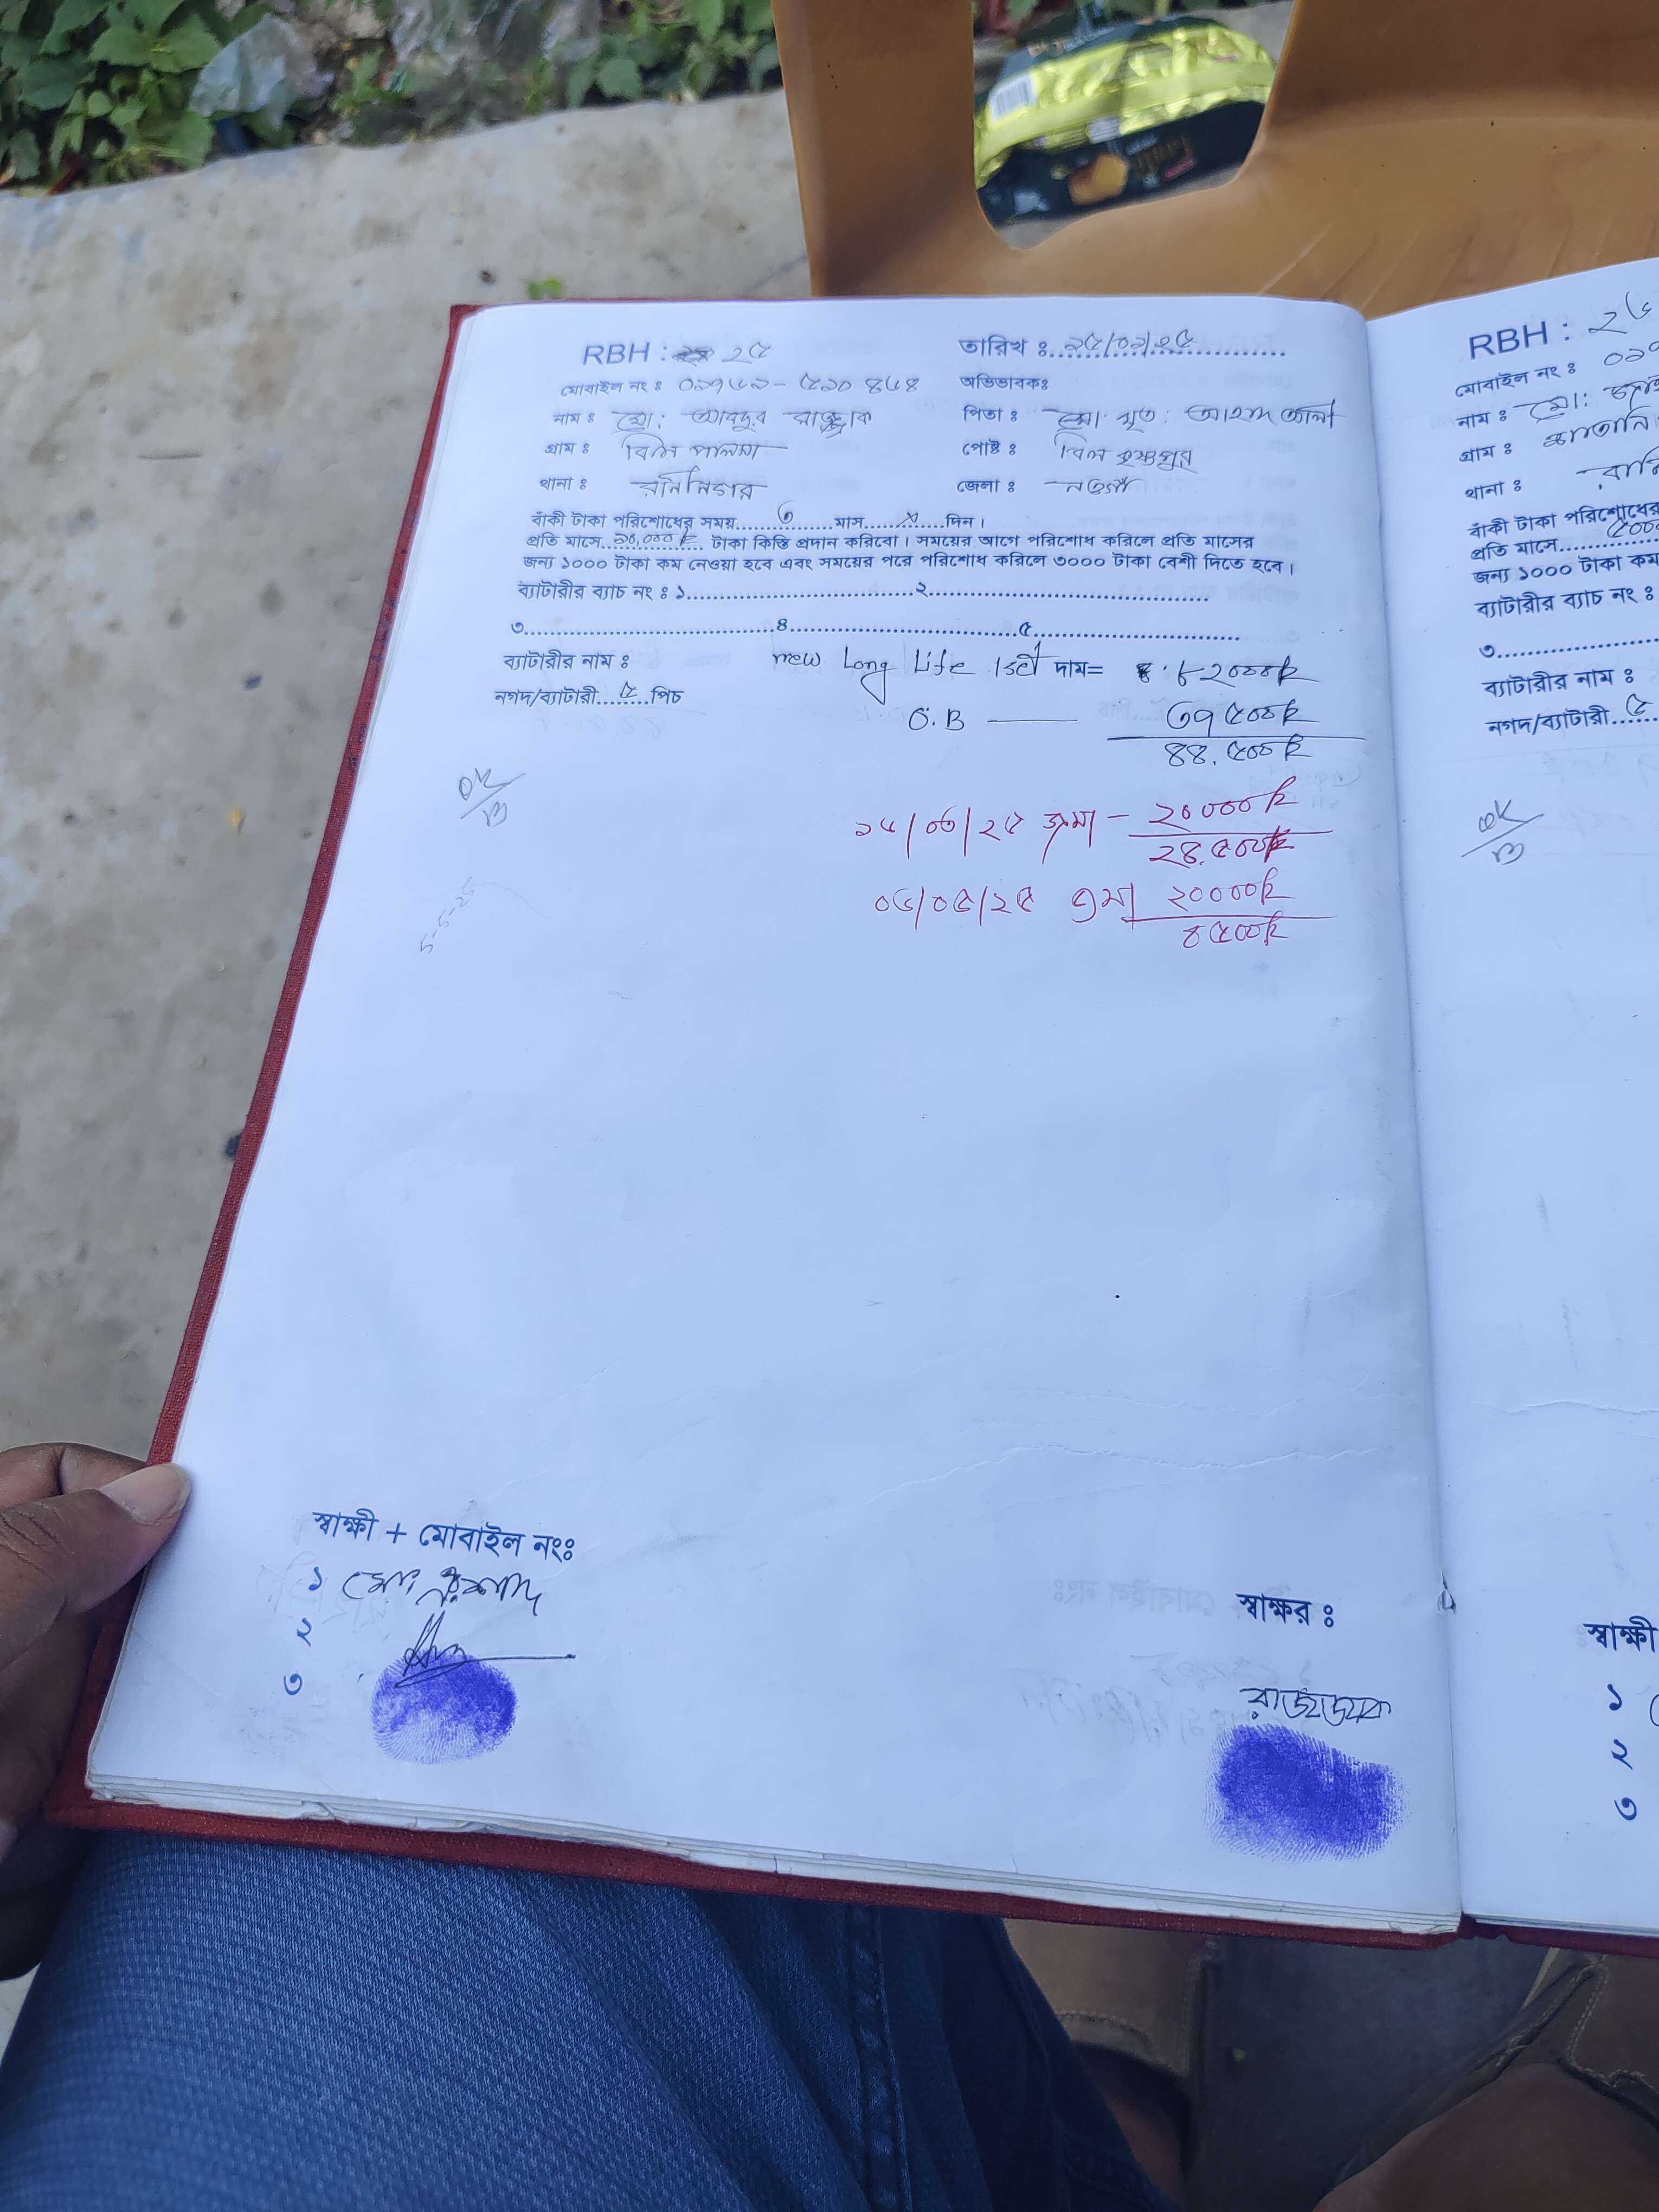 RBH : ২৫
তারিখ : ১৫/০১/২৫
মোবাইল নং : ০১৭৬১-৫১০৪৬৪
অভিভাবকঃ
নাম : মো: আবদুর রাজ্জাক
পিতা : মো: মৃত: আহাদ আলী
গ্রাম : বিল পালসা
পোষ্ট : বিল কৃষ্ণপুর
থানা : রানিনগর
জেলা : নওগাঁ
বাঁকী টাকা পরিশোধের সময়......৩......মাস......x......দিন।
প্রতি মাসে..১০,০০০৳.. টাকা কিস্তি প্রদান করিবো। সময়ের আগে পরিশোধ করিলে প্রতি মাসের
জন্য ১০০০ টাকা কম নেওয়া হবে এবং সময়ের পরে পরিশোধ করিলে ৩০০০ টাকা বেশী দিতে হবে।
ব্যাটারীর ব্যাচ নং : ১..............................২..............................
৩..............................৪..............................৫..............................
ব্যাটারীর নাম : new Long Life 1set দাম= ৮২০০০৳
নগদ/ব্যাটারী...৫...পিচ
O.B — ৩৭৫০০৳
৪৪.৫০০৳
OK
১৬/০৩/২৫ জমা - ২০০০০৳
২৪.৫০০৳
০৬/০৫/২৫ জমা ২০০০০৳
৪৫০০৳
5-5-25
স্বাক্ষী + মোবাইল নংঃ
১ মো:
২
৩
স্বাক্ষর :
রাজ্জাক
RBH : ২৬
মোবাইল নং : ০১৭
নাম : মো:
গ্রাম :
থানা : রানি
বাঁকী টাকা পরিশোধের
প্রতি মাসে.......৫০০০
জন্য ১০০০ টাকা কম
ব্যাটারীর ব্যাচ নং :
৩..............
ব্যাটারীর নাম :
নগদ/ব্যাটারী...৫
OK
স্বাক্ষী
১
২
৩